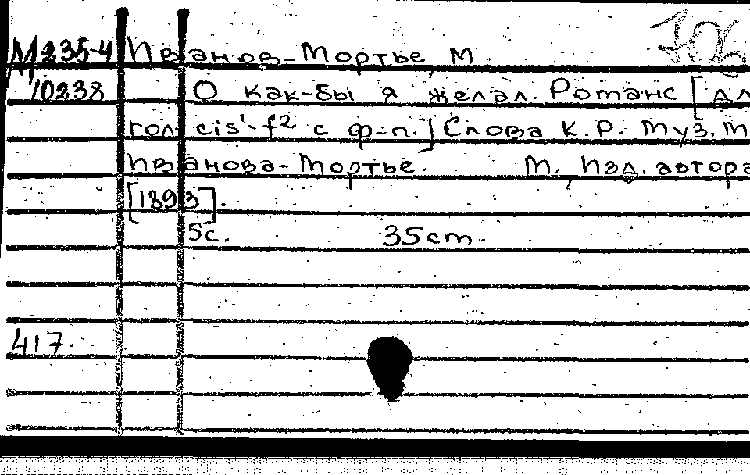 М235-4 Иванов-Мортье, М.
10238 О как-бы я желал. Романс [дл
гол. cis¹-f² с ф-п.] Слова К.Р. Муз. М
Иванова-Мортье. М., Изд. автора
[1893].
5с. 35cm.
417.